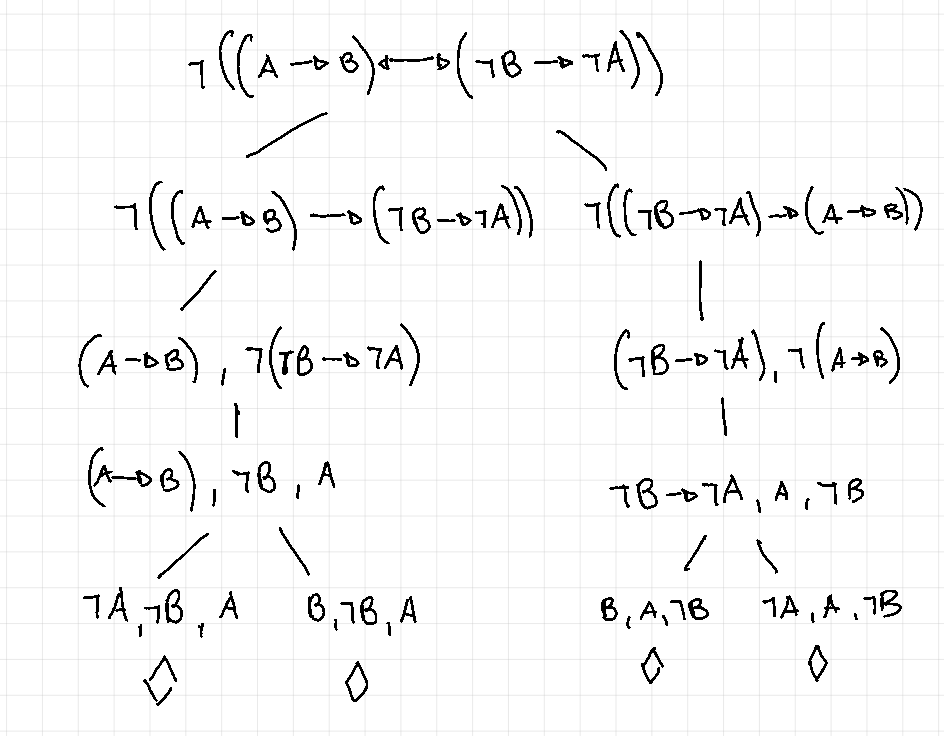 ¬((A → B) ↔ (¬B → ¬A))
¬((A → B) → (¬B → ¬A)) ¬((¬B → ¬A) → (A → B))
(A → B), ¬(¬B → ¬A) (¬B → ¬A), ¬(A → B)
(A → B), ¬B, A ¬B → ¬A, A, ¬B
¬A, ¬B, A B, ¬B, A B, A, ¬B ¬A, A, ¬B
◇ ◇ ◇ ◇